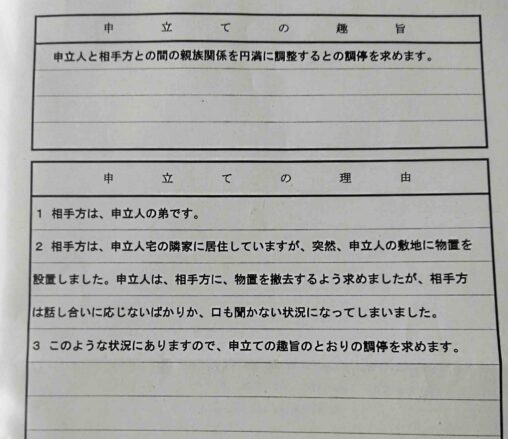 申立ての趣旨
申立人と相手方との間の親族関係を円満に調整するとの調停を求めます。
申立ての理由
1 相手方は、申立人の弟です。
2 相手方は、申立人宅の隣家に居住していますが、突然、申立人の敷地に物置を
設置しました。申立人は、相手方に、物置を撤去するよう求めましたが、相手方
は話し合いに応じないばかりか、口も聞かない状況になってしまいました。
3 このような状況にありますので、申立ての趣旨のとおりの調停を求めます。